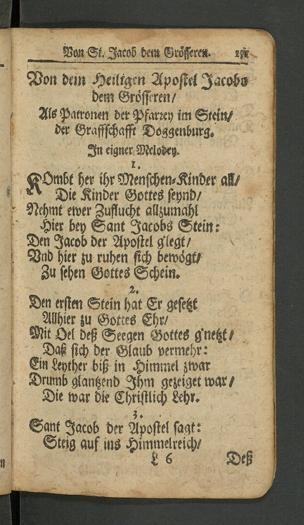 Von St. Jacob dem Grösseren. 251
Von dem Heiligen Apostel Jacobo
dem Grösseren/
Als Patronen der Pfarrey im Stein/
der Graffschafft Doggenburg.
In eigner Melodey.
1.
KOmbt her ihr Menschen-Kinder all/
Die Kinder Gottes seynd/
Nehmt ewer Zuflucht allzumahl
Hier bey Sant Jacobs Stein:
Den Jacob der Apostel g'legt/
Vnd hier zu ruhen sich bewögt/
Zu sehen Gottes Schein.
2.
Den ersten Stein hat Er gesetzt
Allhier zu Gottes Ehr/
Mit Oel deß Seegen Gottes g'netzt/
Daß sich der Glaub vermehr:
Ein Leyther biß in Himmel zwar
Drumb glantzend Ihm gezeiget war/
Die war die Christlich Lehr.
3.
Sant Jacob der Apostel sagt:
Steig auf ins Himmelreich/
L 6 Deß